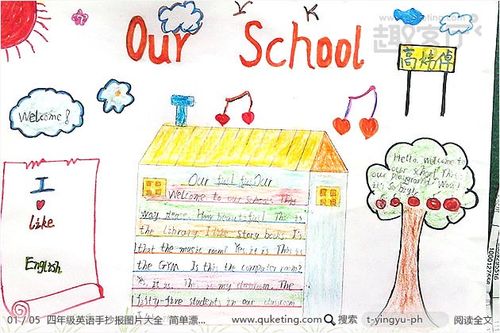 www.quketing.com
Our School
高炜倬
Welcome!
I
like
English
Hello, welcome to
our school! This
our playground. Wow!
It's so big!
Our
Our
Welcome to our school. This
way please. How beautiful! This is
the library. I like story books. Is
that the music room? Yes, it is. This is
the GYM. Is this the computer room?
is. This is my classroom. The
fifty-five students in our classroom
01 / 05 四年级英语手抄报图片大全 简单漂...
www.quketing.com 搜索 t-yingyu-ph 阅读全文